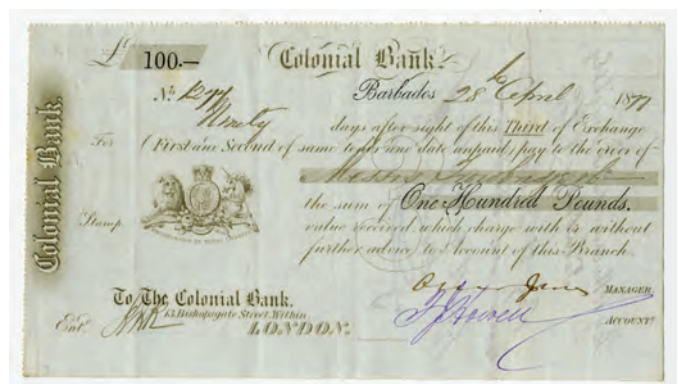 £ 100.— Colonial Bank.
Barbados 28th April 1877
Ninety days after sight of this Third of Exchange
For (First and Second of same tenor and date unpaid) pay to the order of
Messrs
the sum of One Hundred Pounds.
Stamp
value received which charge with or without
further advice to Account of this Branch.
Colonial Bank.
To The Colonial Bank.
13, Bishopsgate Street Within
LONDON.
MANAGER.
Entd.
ACCOUNTT